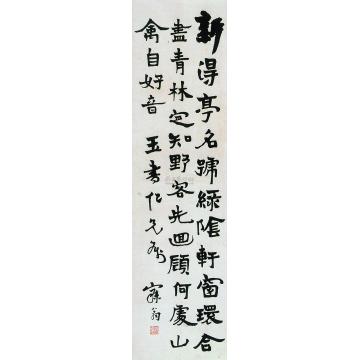 新得亭名號綠陰軒窗環合
盡青林定知野客先回顧何處山
禽自好音
玉書仁兄屬
寐翁